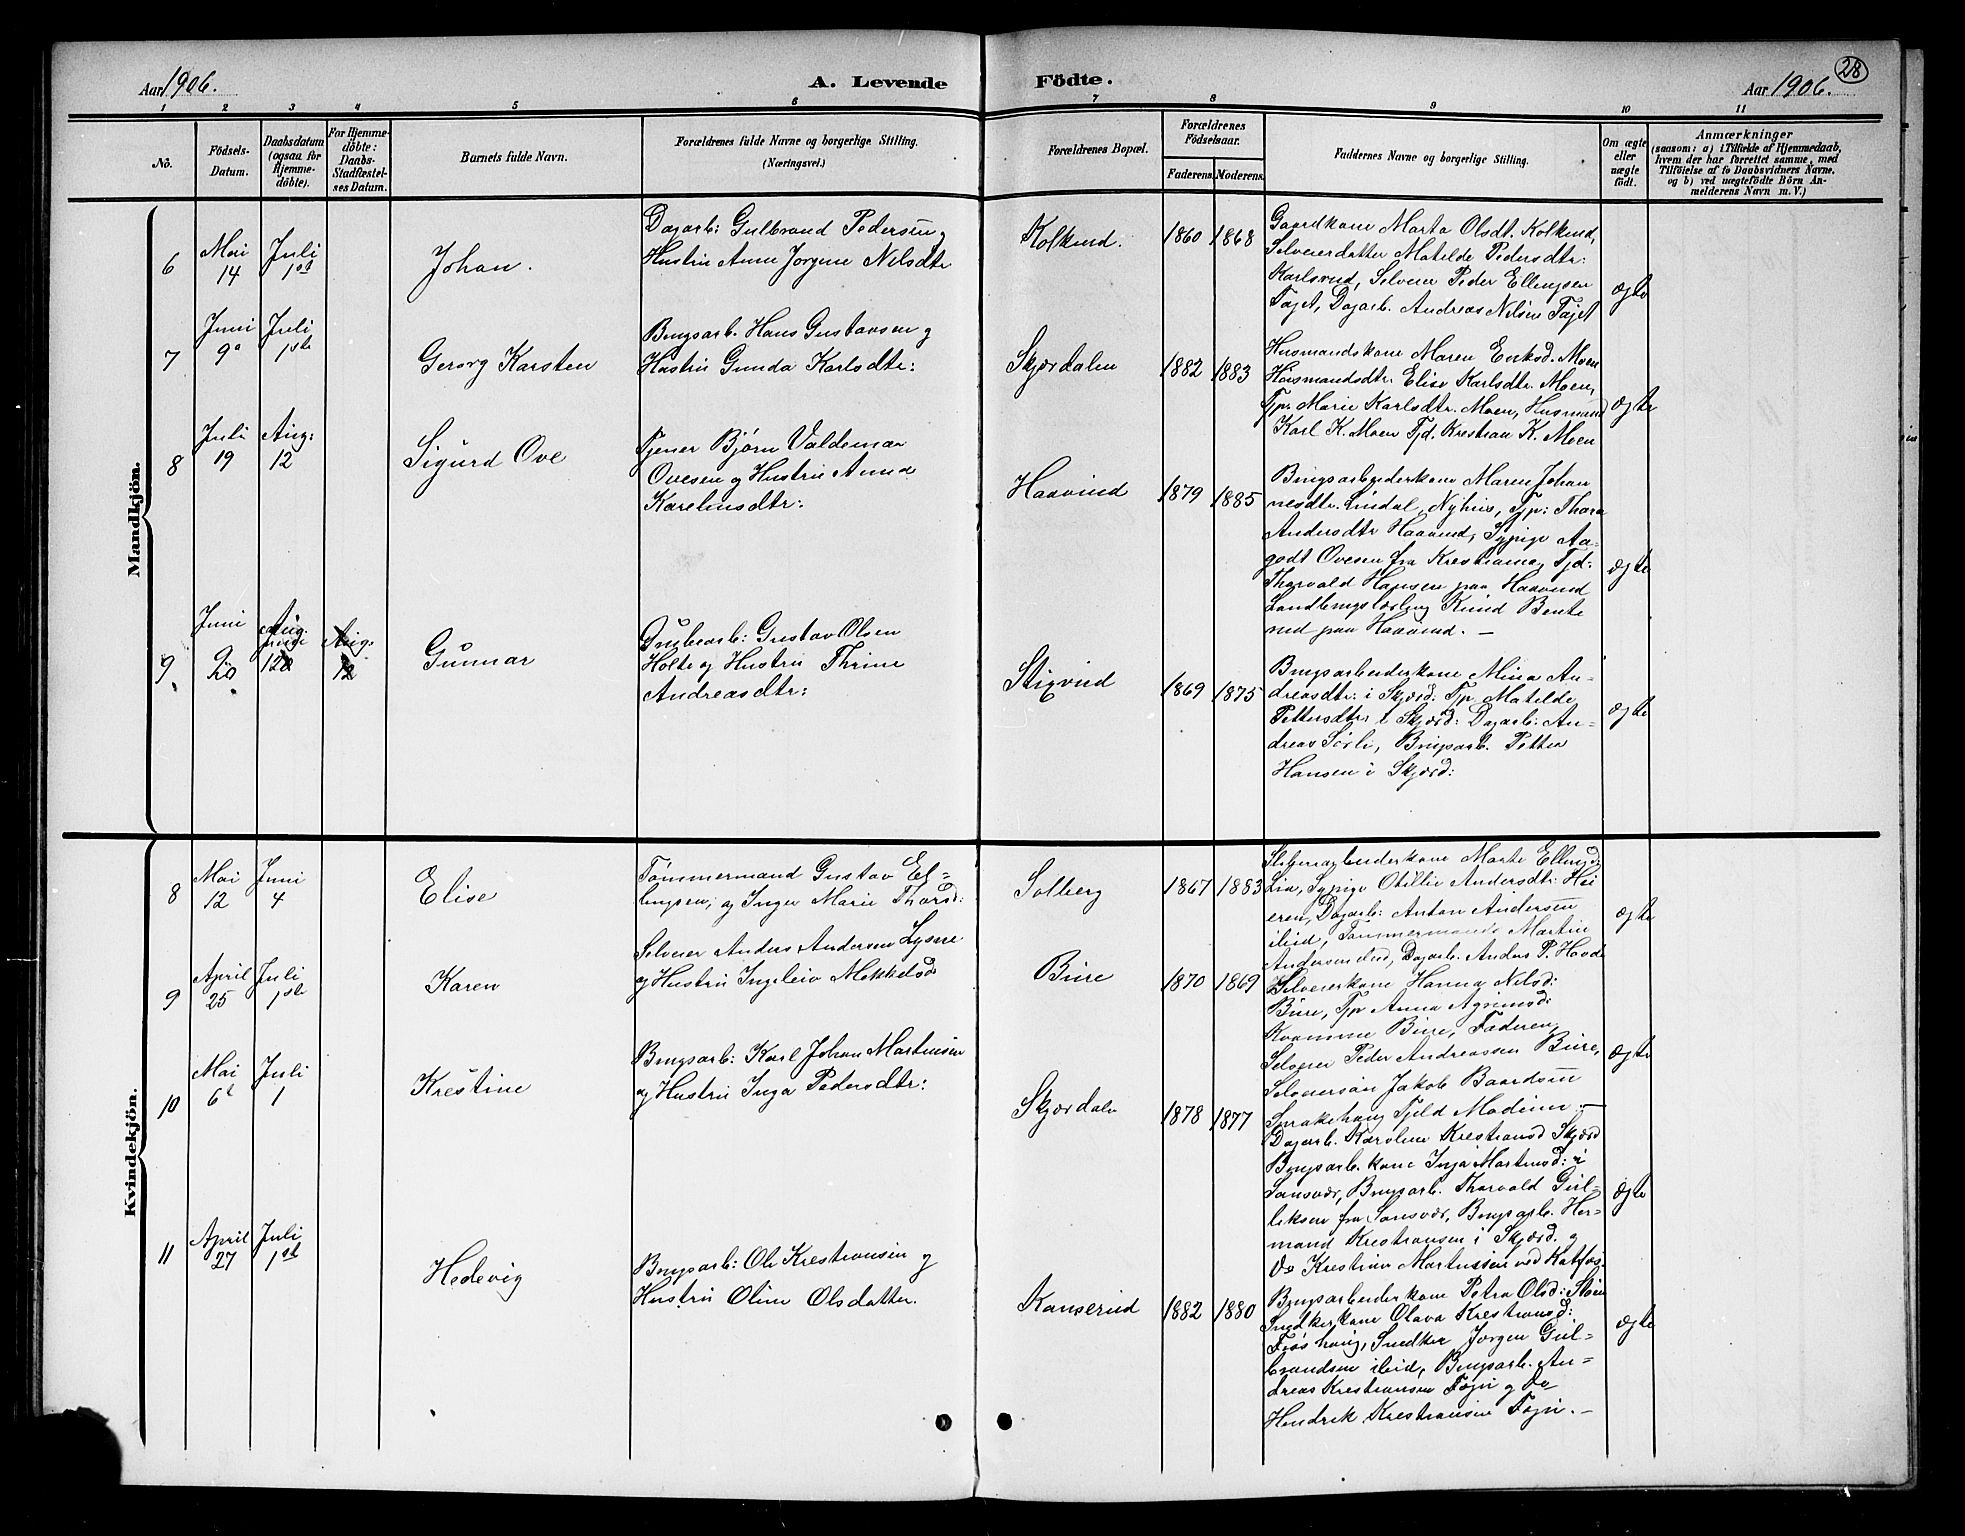 Aar 1906.
A. Levende
Födte.
Aar 1906.
28
1 2 3 4 5 6 7 8 9 10 11
Nö.
Födsels-
Datum.
Daabsdatum
(ogsaa for
Hjemme-
döbte).
For Hjemme-
döbte:
Daabs-
Stadfæstel-
ses Datum.
Barnets fulde Navn.
Forældrenes fulde Navne og borgerlige Stilling.
(Næringsvei.)
Forældrenes Bopæl.
Forældrenes
Födselsaar.
Faderens.
Moderens.
Faddernes Navne og borgerlige Stilling.
Om ægte
eller
uægte
födt.
Anmærkninger
(saasom: a) i Tilfælde af Hjemmedaab,
hvem der har forrettet samme, med
Tilföielse af to Daabsvidners Navne,
og b) ved uægtefödte Börn An-
melderens Navn m. V.)
Mandkjön.
6
Mai
14
Juli
1st
Johan.
Dagarb: Gulbrand Pedersen og
Hustru Anne Jorgine Nilsdtr
Kolknud.
1860
1868
Gaardkone Marta Olsdt. Kolknud,
Selveierdatter Matilde Pedersdtr:
Karlsrud, Selveier Peder Ellingsen
Fajet, Dagarb. Andreas Nilsen Fajet
ægte
7
Juni
9a
Juli
1ste
Gerorg Karsten
Brugsarb. Hans Gustavsen og
Hustru Gunda Karlsdtr:
Skjerdalen
1882
1883
Husmandskone Maren Eriksd. Moen
Husmandsdtr. Elise Karlsdtr. Moen,
Tjp. Marie Karlsdtr. Moen, Husmand
Karl K. Moen Tjd. Krestian K. Moen
ægte
8
Juli
19
Aug:
12
Sigurd Ove
Tjener Björn Valdemar
Ovesen og Hustru Anna
Karelinsdtr:
Haavrud
1879
1885
Brugsarbeiderkone Maren Johan
nesdtr. Lindal, Nyhus, Tjp: Thora
Andersdtr Haavrud, Sypige Aa-
godt Ovesen fra Kristiania, Tjd:
Thorvald Hansen paa Haavrud
Landbrugslærling Knud Bente
rud paa Haavrud. —
ægte
9
Juni
20
Aug.
12
Aug:
12
Gunnar
Grubearb: Gustav Olsen
Holte og Hustru Thrine
Andreasdtr:
Stigrud
1869
1875
Brugsarbeiderkone Mina An-
dreasdtr: i Skjærd: Tjp. Matilde
Pettersdtr i Skjærd: Dagarb: An-
dreas Sørli, Brugsarb. Petter
Hansen i Skjærd:
ægte
Kvindekjön.
8
Mai
12
Juni
4
Elise
Tømmermand Gustav El-
lingsen, og Inger Marie Thorsd:
Solberg
1867
1883
Sliperiarbeiderkone Marte Ellingsd:
Lia, Sypige Otillie Andersdtr: Hei
eren, Dagarb: Anton Andersen
ibid, Tømmermand Martin
Andersen ibid, Dagarb. Anders P. Hovde
ægte
9
April
25
Juli
1ste
Karen
Selveier Anders Andersen Lysne
og Hustru Ingeleiv Mekkelsdr
Bure
1870
1869
Selveierkone Hanna Nilsd:
Bure, Tjp Anna Agrimsd:
Kvamme Bure, Faderen,
Selveier Peder Andreassen Bure,
Selveiersøn Jakob Baardsen
Sprakehaug Tjeld Modum. —
ægte
10
Mai
6t
Juli
1
Krestine
Brugsarb: Karl Johan Martinsen
og Hustru Inga Pedersdtr:
Skjerdale
1878
1877
Dagarb. Karoline Krestiansd Skjærd
Brugsarb. kone Inga Martinsd: i
Sansvær, Brugsarb. Thorvald Gul-
liksen fra Sansvær, Brugsarb. Her-
mand Krestiansen i Skjærd. og
Do Krestian Martinsen ved Katfos
ægte
11
April
27
Juli
1st
Hedevig
Brugsarb: Ole Krestiansen og
Hustru Oline Olsdatter.
Kanserud
1882
1880
Brugsarbeiderkone Petra Olsd: Steen
Snedkerkone Olava Krestiansd:
Foss haug, Snedker Jorgen Gul-
brandsen ibid, Brugsarb. An-
dreas Krestiansen Fogn og Do
Hendrik Krestiansen Fogn. —
ægte